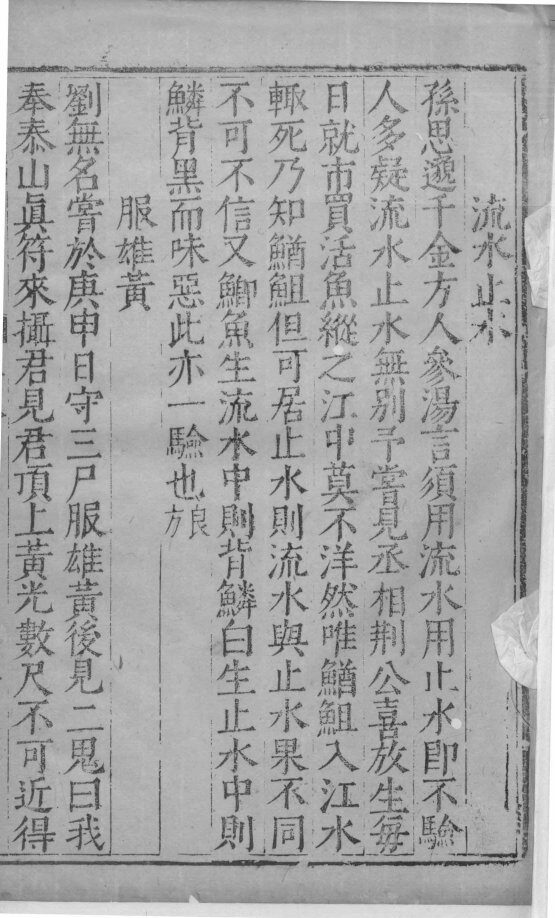 流水止水
孫思邈千金方人參湯言須用流水用止水卽不驗
人多疑流水止水無別予嘗見丞相荆公喜放生每
日就市買活魚縱之江中莫不洋然唯鰌䱉入江水
輙死乃知鰌䱉但可居止水則流水與止水果不同
不可不信又鯽魚生流水中則背鱗白生止水中則
鱗背黑而味惡此亦一驗也良方
服雄黃
劉無名嘗於庚申日守三尸服雄黃後見二鬼曰我
奉泰山眞符來攝君見君頂上黃光數尺不可近得